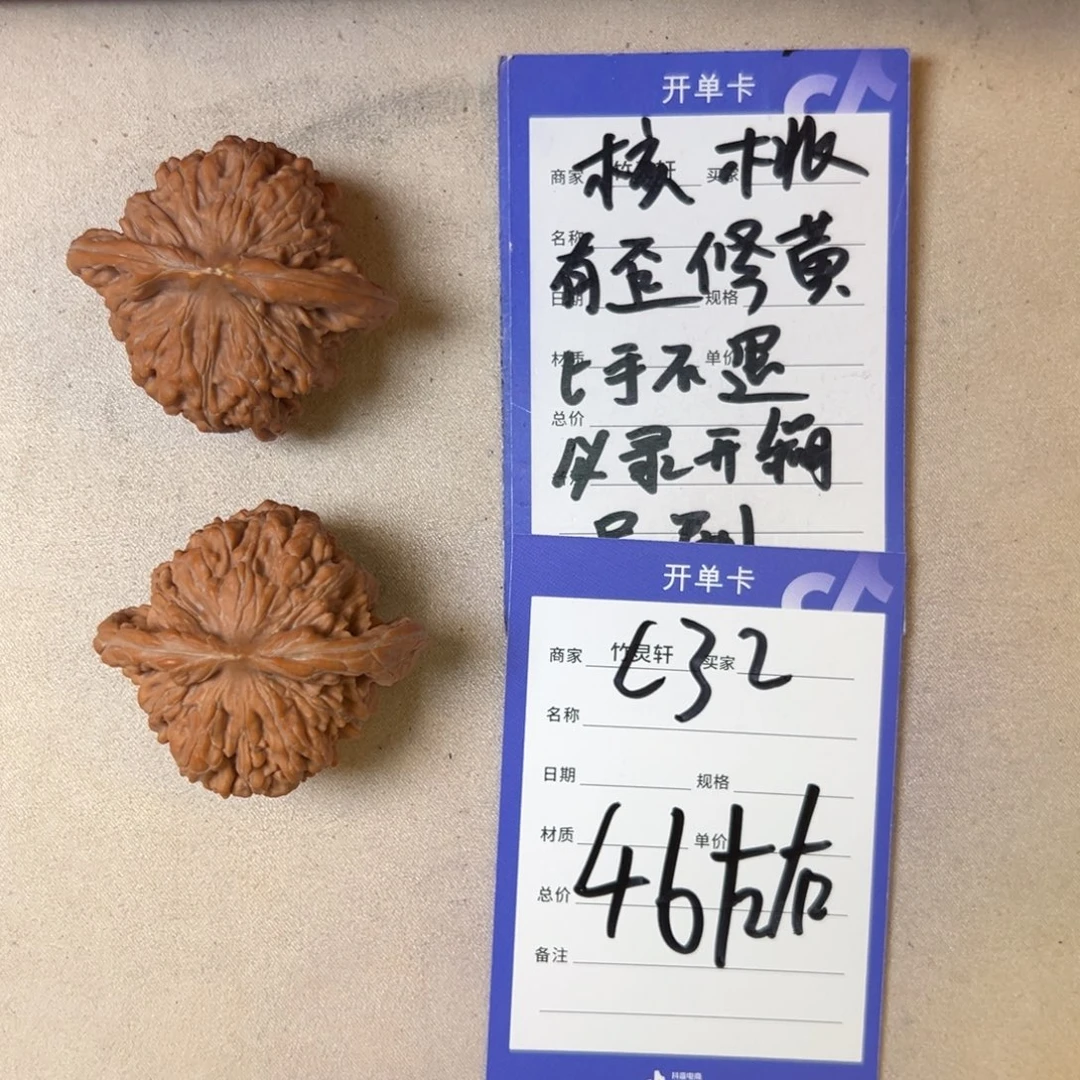 开单卡
核桃
商家 竹灵轩 买家
名称
有歪修黄
日期 规格
材质 单价
上手不退
总价
必录开箱
开单卡
商家 竹灵轩 买家
C32
名称
日期 规格
材质 单价
46左右
总价
备注
抖音电商